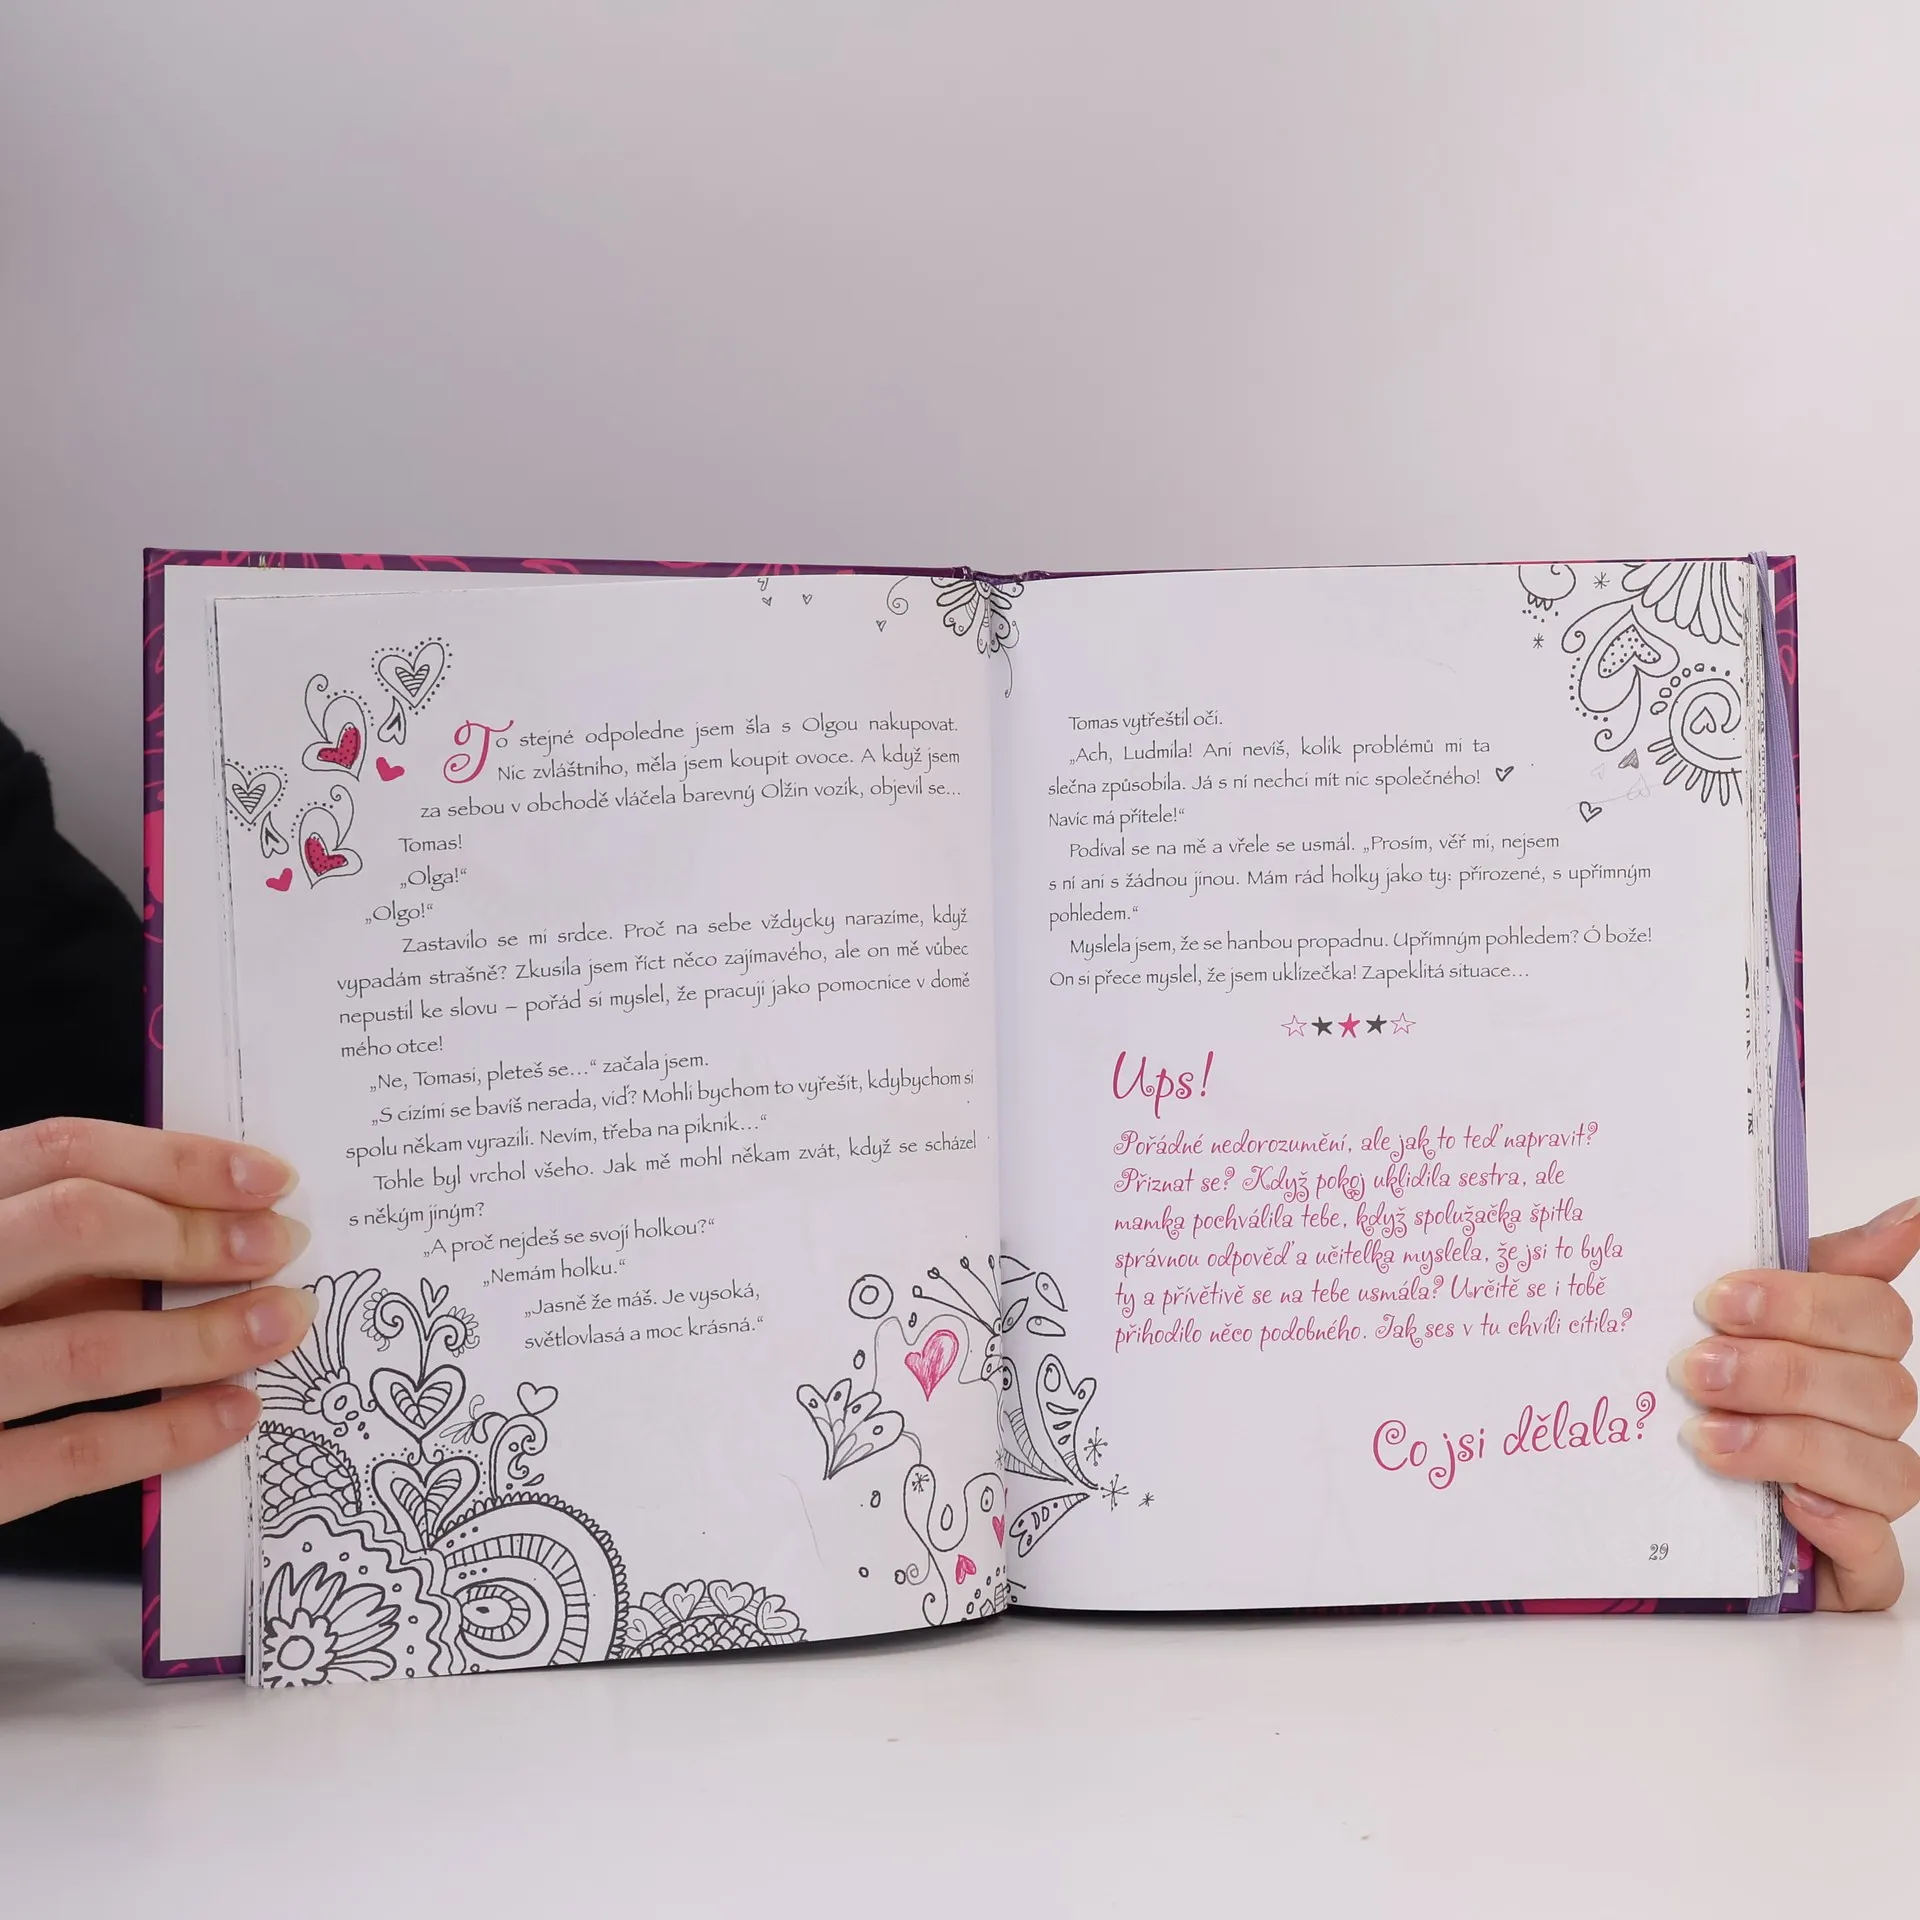 To stejné odpoledne jsem šla s Olgou nakupovat.
Nic zvláštního, měla jsem koupit ovoce. A když jsem
za sebou v obchodě vláčela barevný Olžin vozík, objevil se...
Tomas!
„Olga!“
„Olgo!“
Zastavilo se mi srdce. Proč na sebe vždycky narazíme, když
vypadám strašně? Zkusila jsem říct něco zajímavého, ale on mě vůbec
nepustil ke slovu – pořád si myslel, že pracuji jako pomocnice v domě
mého otce!
„Ne, Tomasi, pleteš se...“ začala jsem.
„S cizími se bavíš nerada, viď? Mohli bychom to vyřešit, kdybychom si
spolu někam vyrazili. Nevím, třeba na piknik...“
Tohle byl vrchol všeho. Jak mě mohl někam zvát, když se scházel
s někým jiným?
„A proč nejdeš se svojí holkou?“
„Nemám holku.“
„Jasně že máš. Je vysoká,
světlovlasá a moc krásná.“
Tomas vytřeštil oči.
„Ach, Ludmila! Ani nevíš, kolik problémů mi ta
slečna způsobila. Já s ní nechci mít nic společného!
Navíc má přítele!“
Podíval se na mě a vřele se usmál. „Prosím, věř mi, nejsem
s ní ani s žádnou jinou. Mám rád holky jako ty: přirozené, s upřímným
pohledem.“
Myslela jsem, že se hanbou propadnu. Upřímným pohledem? Ó bože!
On si přece myslel, že jsem uklízečka! Zapeklitá situace...
Ups!
Pořádné nedorozumění, ale jak to teď napravit?
Přiznat se? Když pokoj uklidila sestra, ale
mamka pochválila tebe, když spolužačka špitla
správnou odpověď a učitelka myslela, že jsi to byla
ty a přívětivě se na tebe usmála? Určitě se i tobě
přihodilo něco podobného. Jak ses v tu chvíli cítila?
Co jsi dělala?
29